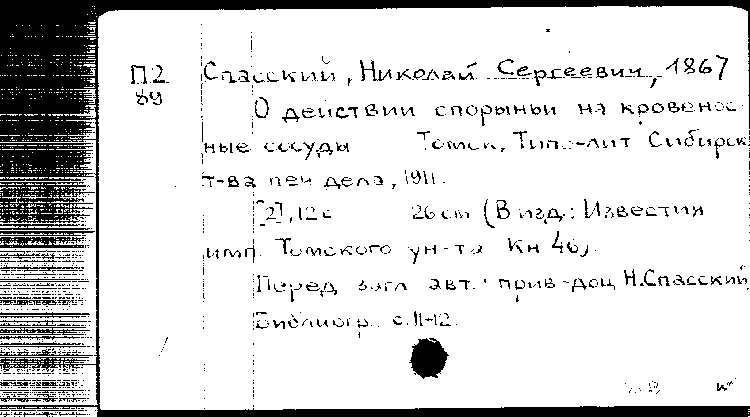 П.2 Спасский, Николай Сергеевич, 1867
89 О действии спорыньи на кровенос-
ные сосуды Томск, Типо-лит Сибирск
т-ва печ дела, 1911.
[2], 12 с 26 см (В изд.: Известия
имп. Томского ун-та Кн 46).
Перед загл авт.: прив-доц Н.Спасский
Библиогр. с. 11-12.